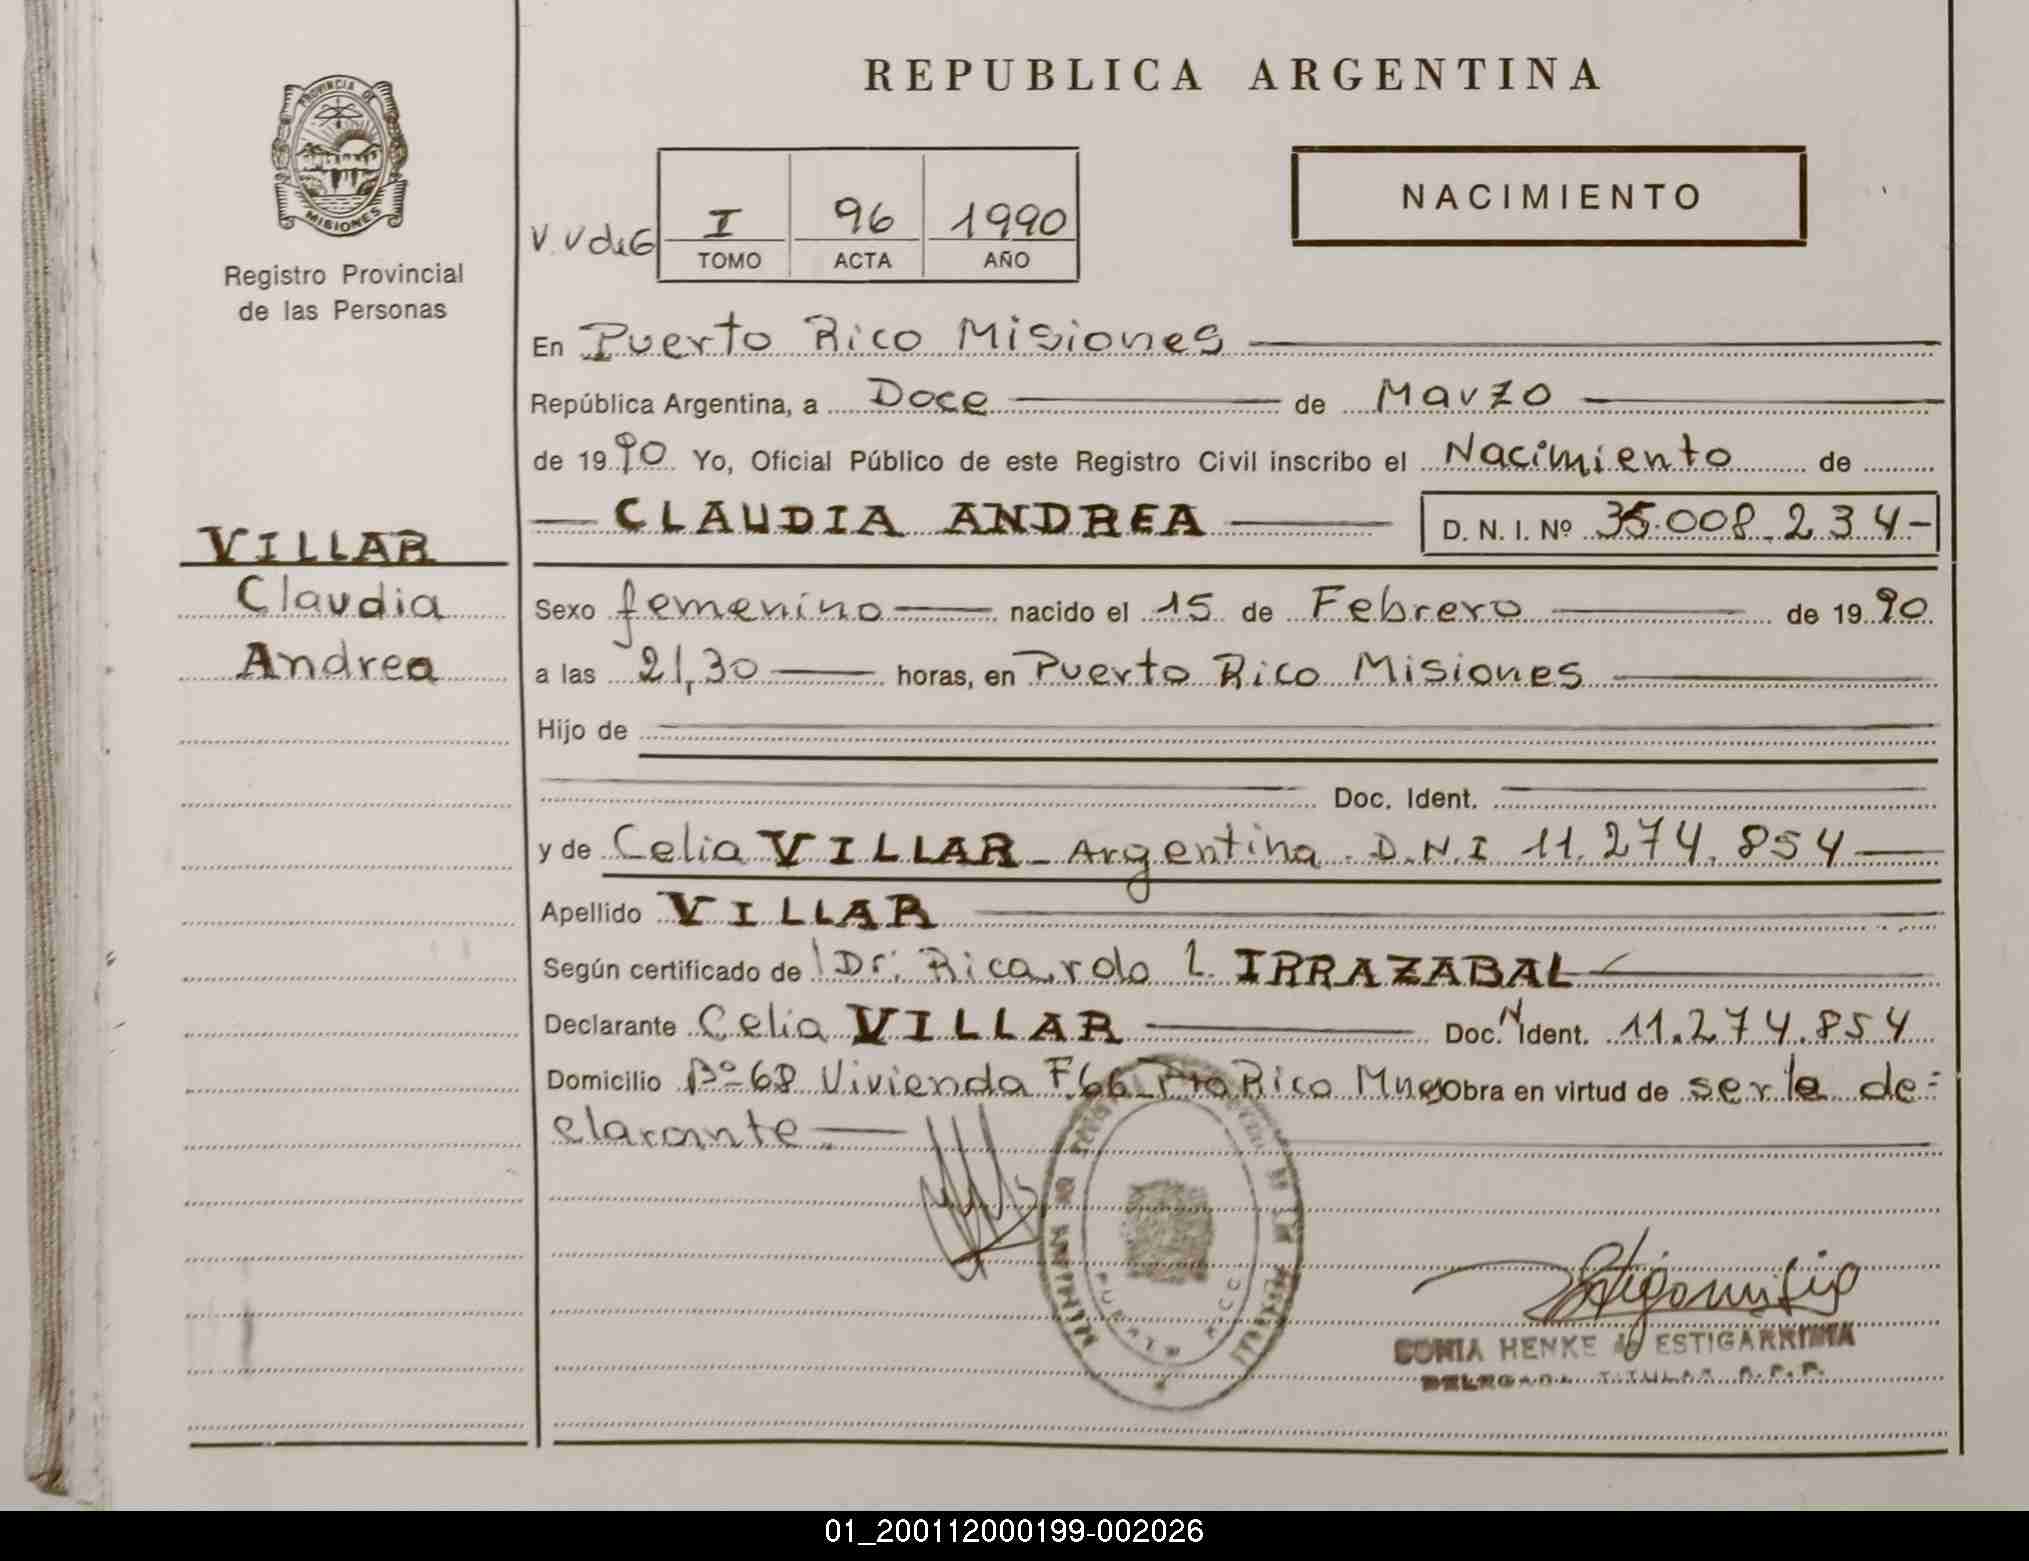 REPUBLICA ARGENTINA
PROVINCIA DE
MISIONES
Registro Provincial
de las Personas
NACIMIENTO
V.V de G
I 96 1990
TOMO ACTA AÑO
En Puerto Rico Misiones
República Argentina, a Doce de Marzo
de 1990 Yo, Oficial Público de este Registro Civil inscribo el Nacimiento de
CLAUDIA ANDREA D. N. I. Nº 35.008.234-
VILLAR
Claudia
Andrea
Sexo femenino nacido el 15 de Febrero de 1990
a las 21,30 horas, en Puerto Rico Misiones
Hijo de
Doc. Ident.
y de Celia VILLAR - Argentina. D.N.I 11.274.854
Apellido VILLAR
Según certificado de Dr. Ricardo L. IRRAZABAL
Declarante Celia VILLAR Doc. Ident. 11.274.854
Domicilio Bº 68 Vivienda F.66 Pto Rico Mnes Obra en virtud de ser la de=
clarante.
PUERTO RICO
SONIA HENKE de ESTIGARRIBIA
DELEGADA TITULAR R.P.P.
01_200112000199-002026